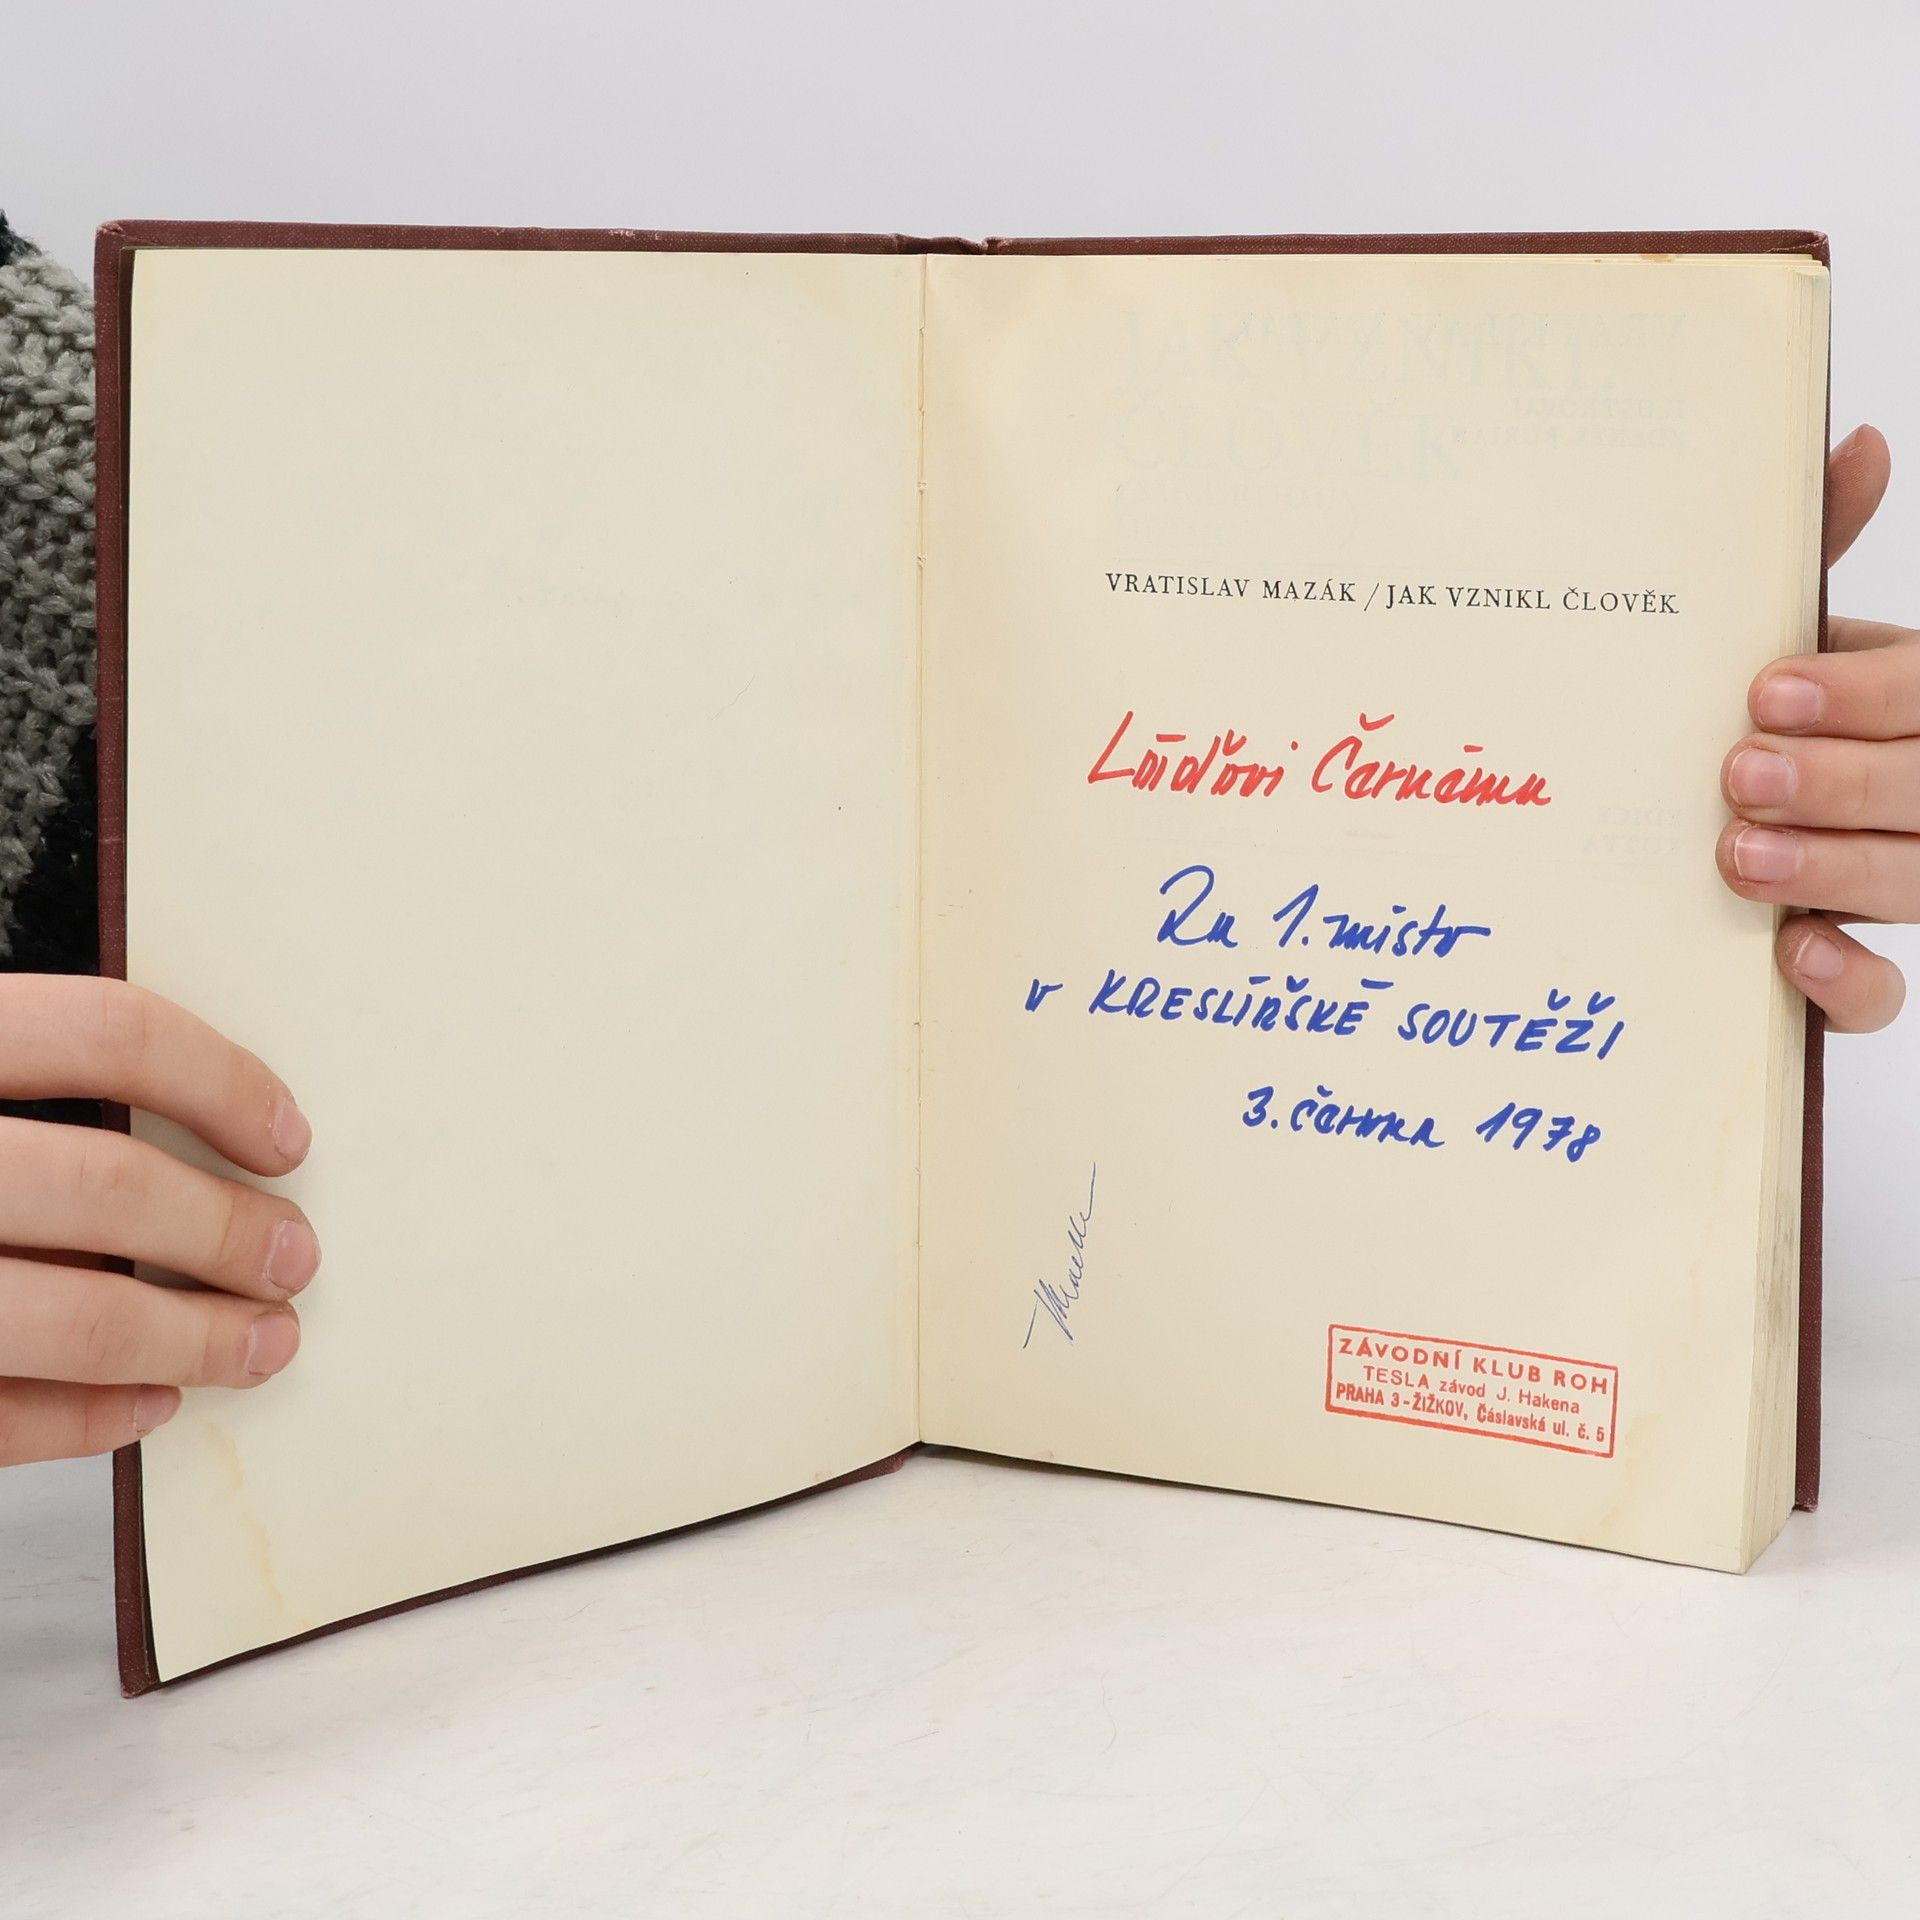 VRATISLAV MAZÁK / JAK VZNIKL ČLOVĚK
Láďovi Černému
Za 1. místo
v KRESLÍŘSKÉ SOUTĚŽI
3. června 1978
ZÁVODNÍ KLUB ROH
TESLA závod J. Hakena
PRAHA 3 - ŽIŽKOV, Čáslavská ul. č. 5